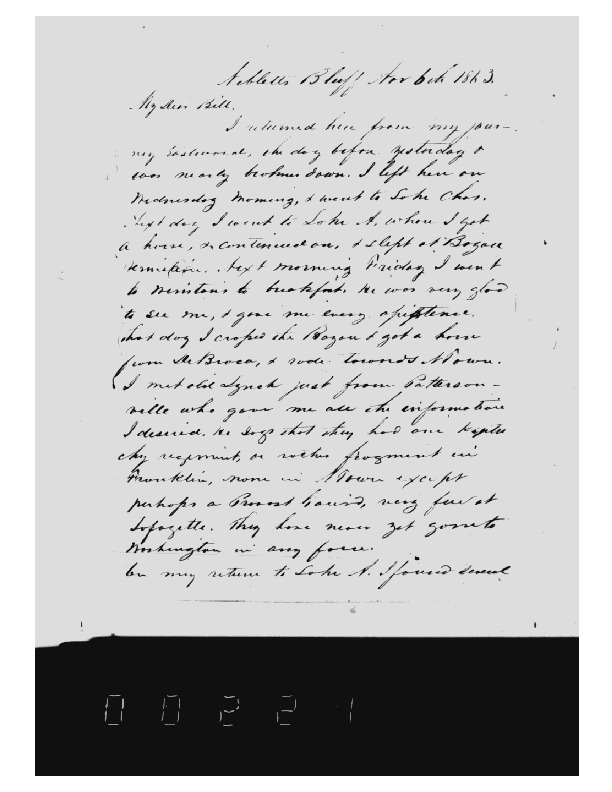 Nibletts Bluff Nov 6th 1863.
My Dear Bill.
I returned here from my jour-
ney Eastward, the day before yesterday &
was nearly broken down. I left here on
Wednesday Morning, & went to Lake Chas.
Next day I went to Lake A. where I got
a horse, & continued on, & slept at Bayou
Vermilion. Next morning Friday I went
to Winstons to breakfast. He was very glad
to see me, & gave me every assistance.
that day I crossed the Bayou & got a horse
from DeBroca, & rode towards N Town.
I met old Lynch just from Patterson-
ville who gave me all the information
I desired. He says that they had one Kentu
cky regiment, or rather fragment in
Franklin, none in N Town except
perhaps a Provost Guard, very few at
Lafayette. They have never yet gone to
Washington in any force.
On my return to Lake A. I found several
00221